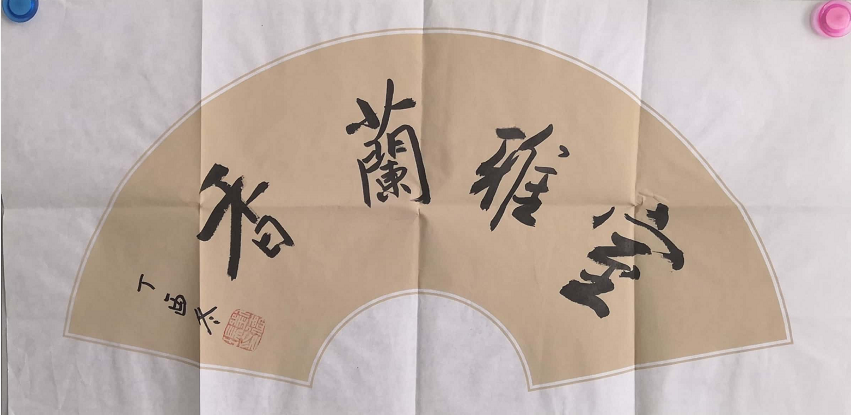 室雅蘭香
丁酉冬